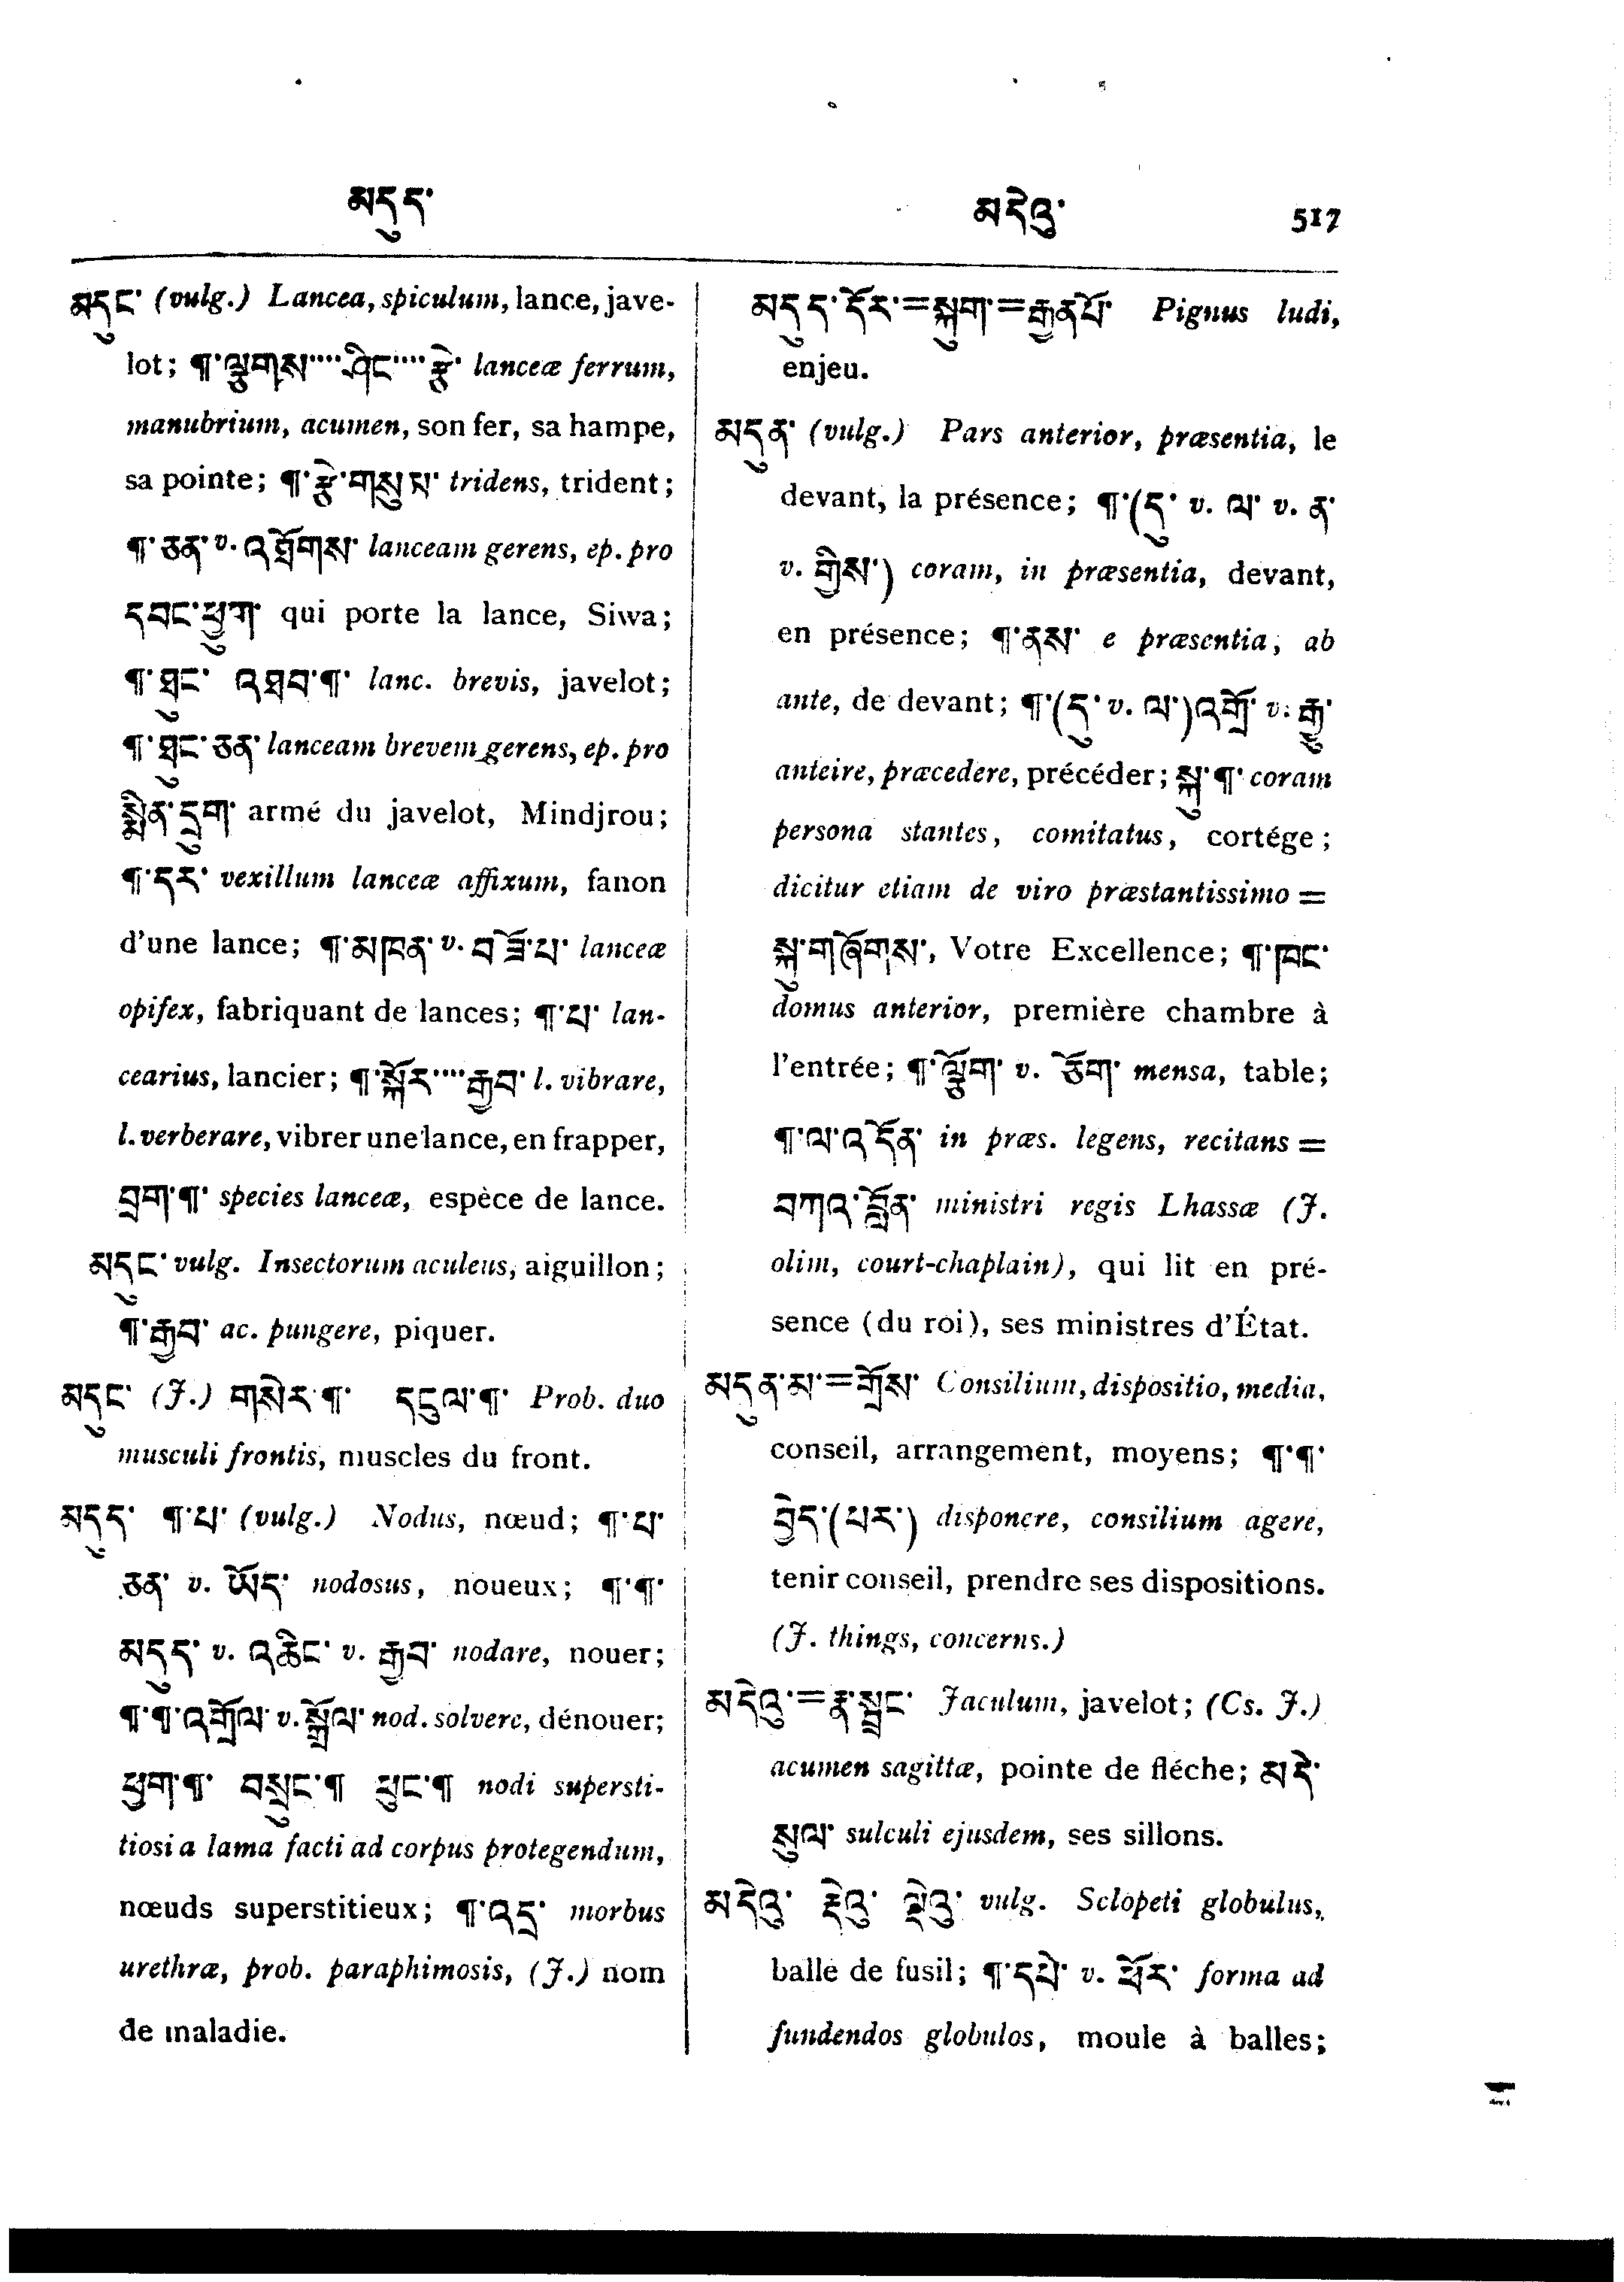 མདུད་ མདེའུ་ 517
མདུང་ (vulg.) Lancea, spiculum, lance, jave-
lot; ¶་ལྕུགས་····ཤིང་····རྩེ་ lanceæ ferrum,
manubrium, acumen, son fer, sa hampe,
sa pointe; ¶་རྩེ་གསུམ་ tridens, trident;
¶་ཅན་ v. འཐོགས་ lanceam gerens, ep. pro
དབང་ཕྱུག་ qui porte la lance, Siwa;
¶་ཐུང་ འཐབ་¶་ lanc. brevis, javelot;
¶་ཐུང་ཅན་ lanceam brevem gerens, ep. pro
སྨིན་དྲུག་ armé du javelot, Mindjrou;
¶་དར་ vexillum lanceæ affixum, fanon
d'une lance; ¶་མཁན་ v. བཟོ་པ་ lanceæ
opifex, fabriquant de lances; ¶་པ་ lan-
cearius, lancier; ¶་སྐོར་····རྒྱབ་ l. vibrare,
l. verberare, vibrer une lance, en frapper,
བྲག་¶་ species lanceæ, espèce de lance.
མདུང་ vulg. Insectorum aculeus, aiguillon;
¶་རྒྱབ་ ac. pungere, piquer.
མདུང་ (J.) གསེར་¶་ དངུལ་¶་ Prob. duo
musculi frontis, muscles du front.
མདུད་ ¶་པ་ (vulg.) Nodus, nœud; ¶་པ་
ཅན་ v. ཡོད་ nodosus, noueux; ¶་¶་
མདུད་ v. འཆིང་ v. རྒྱབ་ nodare, nouer;
¶་¶་འགྲོལ་ v. སྒྲོལ་ nod. solvere, dénouer;
ཕྱག་¶་ བསྲུང་¶ ཕུང་¶ nodi supersti-
tiosi a lama facti ad corpus protegendum,
nœuds superstitieux; ¶་འདྲ་ morbus
urethræ, prob. paraphimosis, (J.) nom
de maladie.
མདུད་དོར་=སྐུག་=རྒྱནཔོ་ Pignus ludi,
enjeu.
མདུན་ (vulg.) Pars anterior, præsentia, le
devant, la présence; ¶་(དུ་ v. ལ་ v. ན་
v. གྱིས་) coram, in præsentia, devant,
en présence; ¶་ནས་ e præsentia, ab
ante, de devant; ¶་(དུ་ v. ལ་)འགྲོ་ v. རྒྱུ་
anteire, præcedere, précéder; སྐུ་¶་ coram
persona stantes, comitatus, cortége;
dicitur etiam de viro præstantissimo =
སྐུ་གཞོགས་, Votre Excellence; ¶་ཁང་
domus anterior, première chambre à
l'entrée; ¶་ལྕོག་ v. ཅོག་ mensa, table;
¶་ལ་འདོན་ in præs. legens, recitans =
བཀའ་བློན་ ministri regis Lhassæ (J.
olim, court-chaplain), qui lit en pré-
sence (du roi), ses ministres d'État.
མདུན་མ་=གྲོས་ Consilium, dispositio, media,
conseil, arrangement, moyens; ¶་¶་
བྱེད་(པར་) disponere, consilium agere,
tenir conseil, prendre ses dispositions.
(J. things, concerns.)
མདེའུ་=རྣ་སྦྲང་ Jaculum, javelot; (Cs. J.)
acumen sagittæ, pointe de fléche; མདེ་
སུལ་ sulculi ejusdem, ses sillons.
མདེའུ་ རྡེའུ་ ལྡེའུ་ vulg. Sclopeti globulus,
balle de fusil; ¶་དཔེ་ v. ཕོར་ forma ad
fundendos globulos, moule à balles;